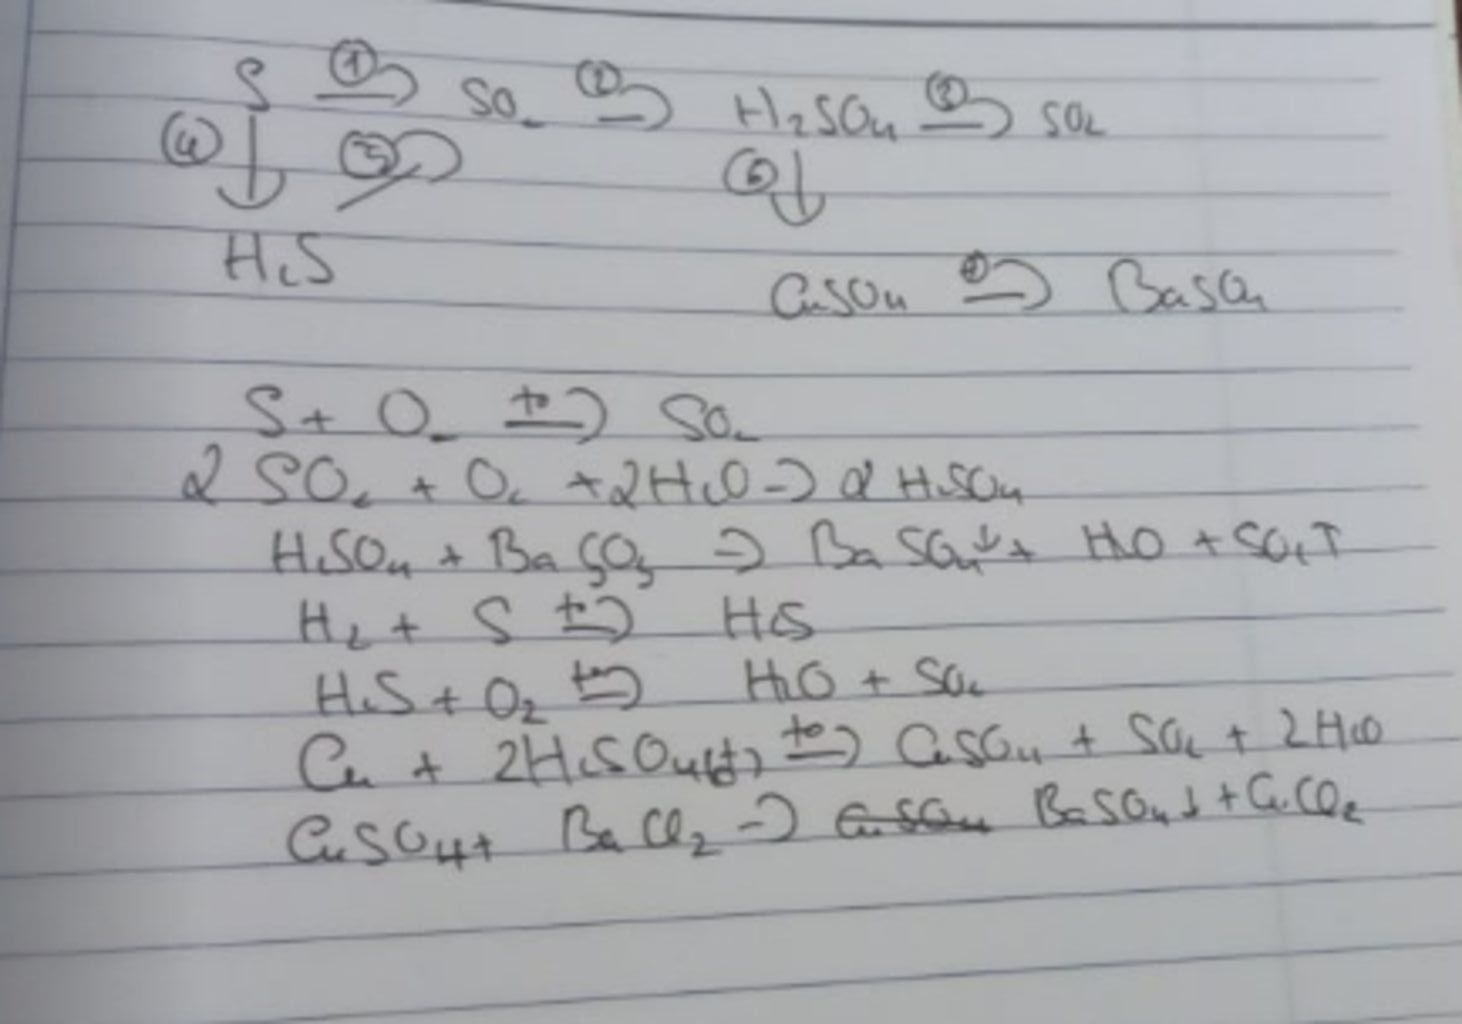 S ①→ SO₂ ②→ H₂SO₄ ③→ SO₂
④↓ ⑤→ ⑥↓
H₂S
CuSO₄ ⑦→ BaSO₄
S + O₂ t°→ SO₂
2 SO₂ + O₂ + 2H₂O → 2 H₂SO₄
H₂SO₄ + BaSO₃ → BaSO₄↓ + H₂O + SO₂↑
H₂ + S t°→ H₂S
H₂S + O₂ t°→ H₂O + SO₂
Cu + 2H₂SO₄(đ) t°→ CuSO₄ + SO₂ + 2H₂O
CuSO₄ + BaCl₂ → CuSO₄ BaSO₄↓ + CuCl₂